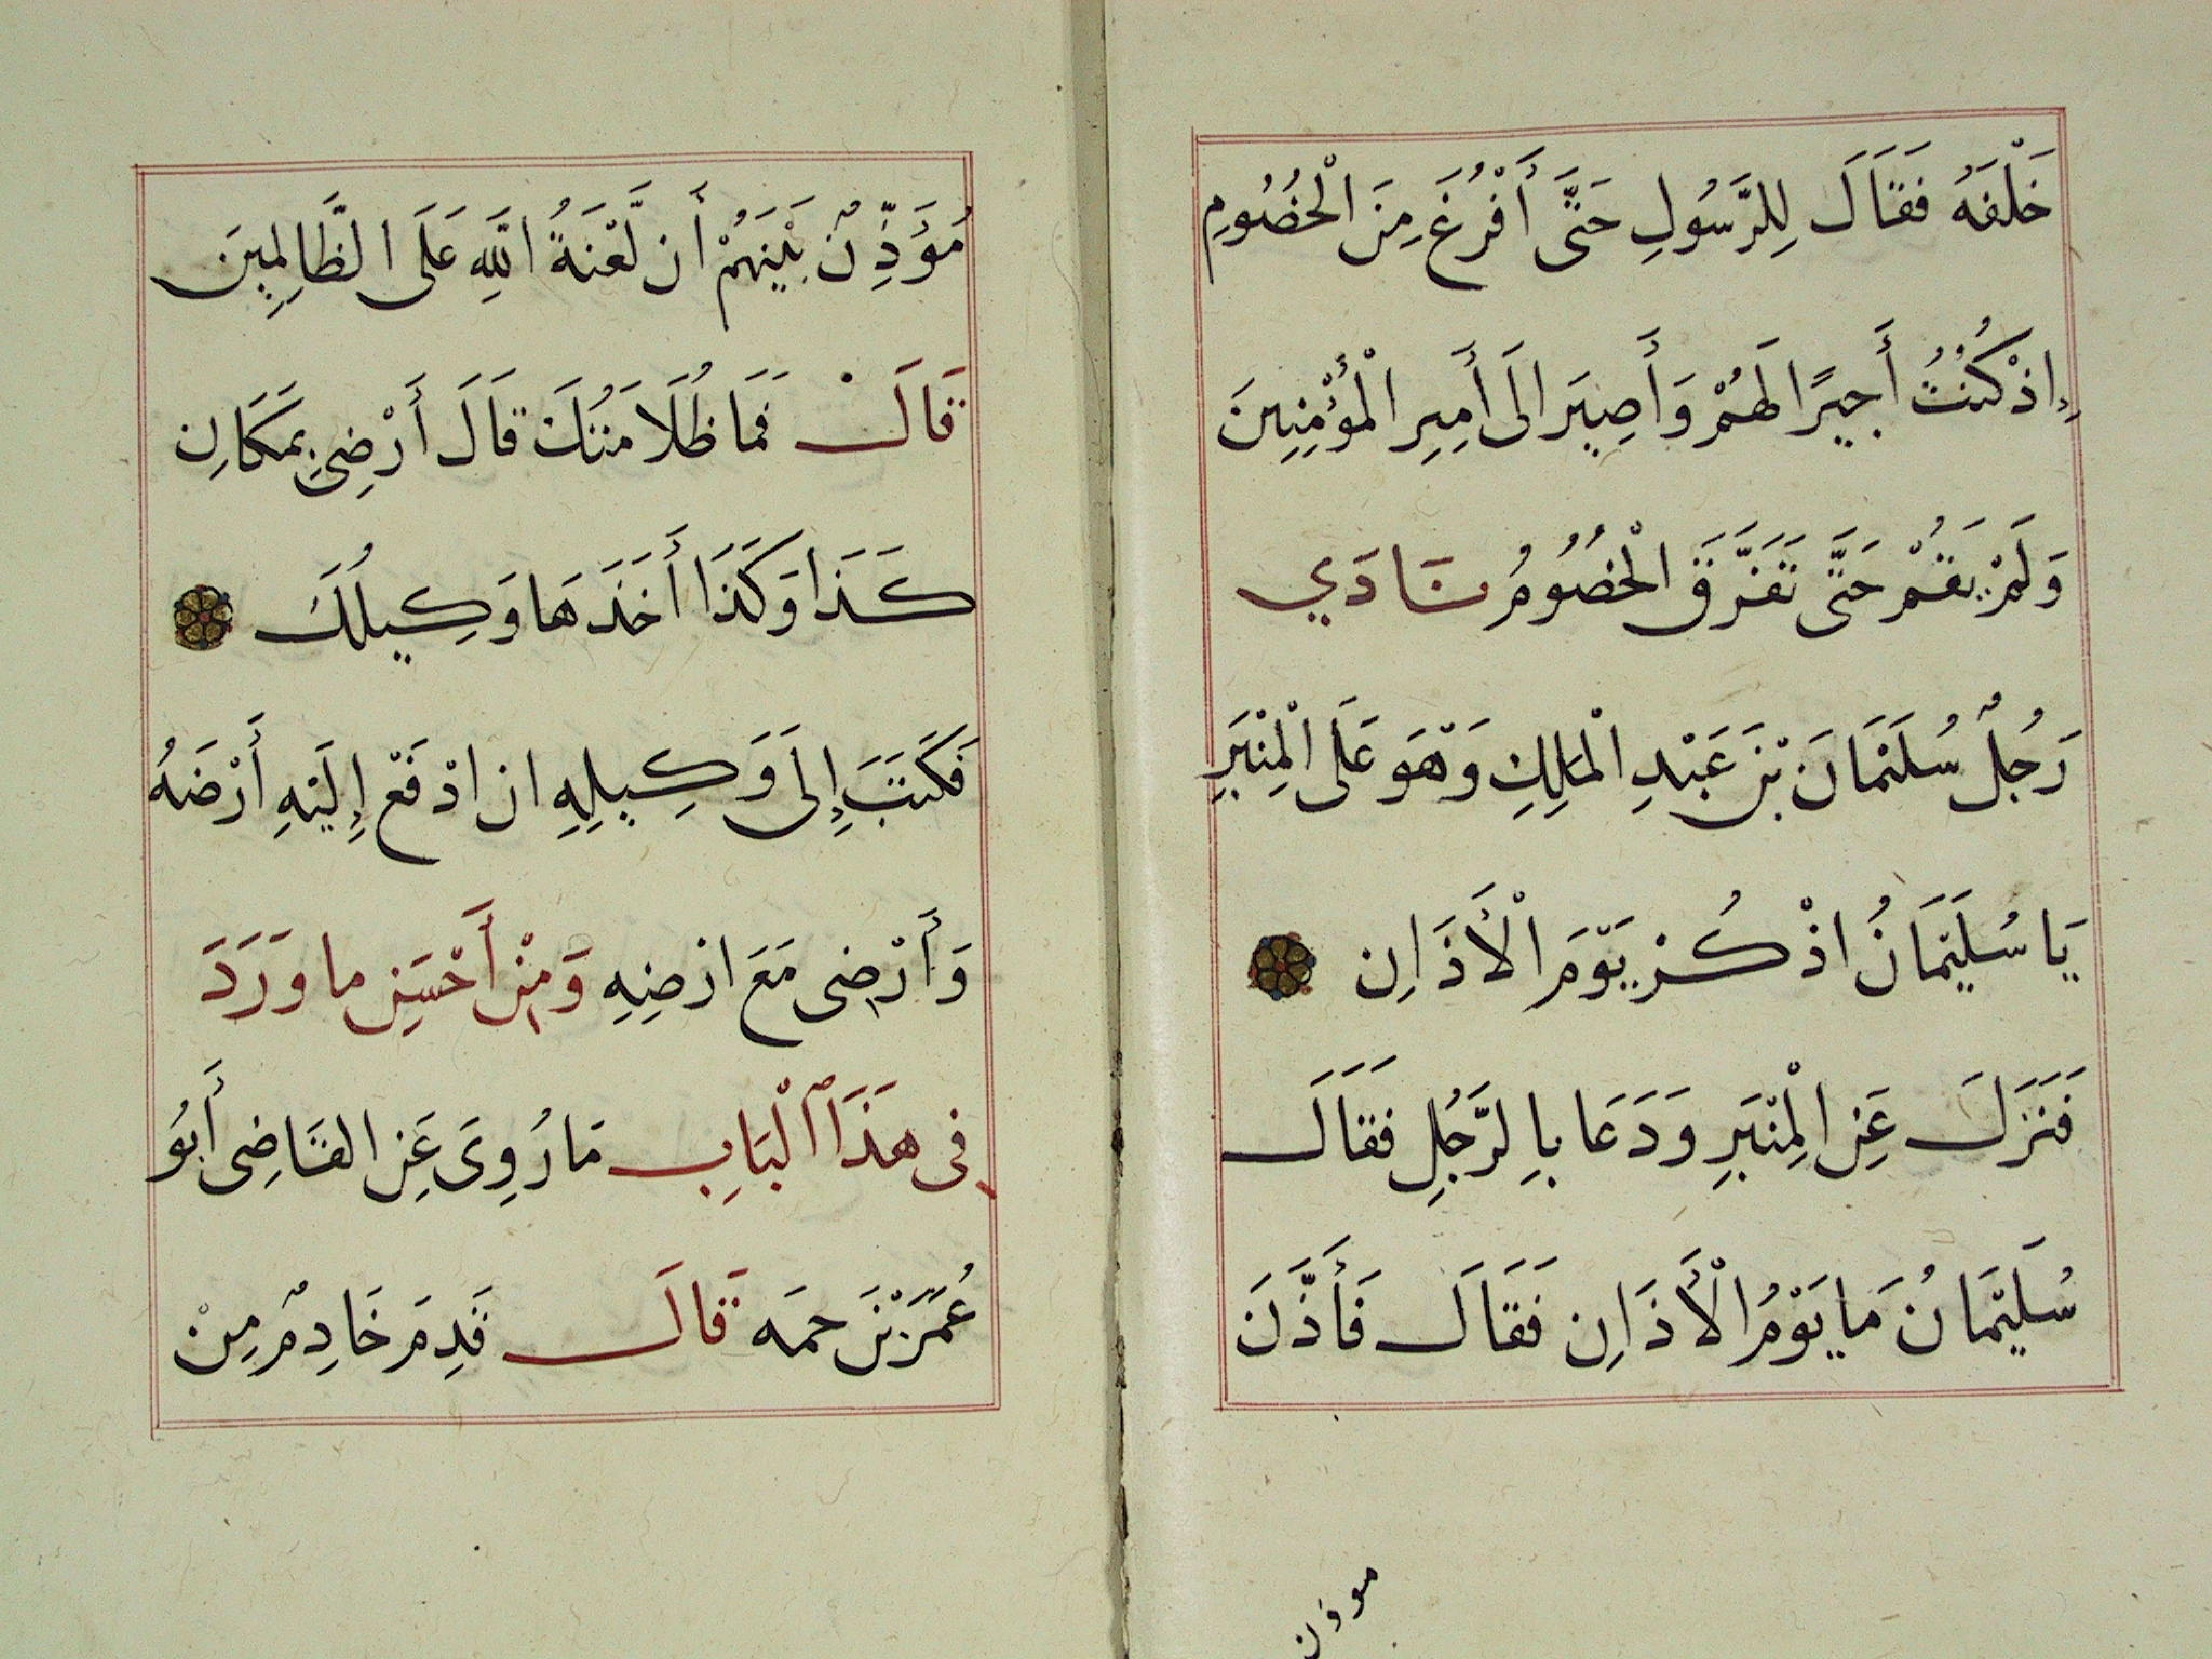 خَلْفَهُ فَقَالَ لِلرَّسُولِ حَتَّى أَفْرُغَ مِنَ الْخُصُومِ
إِذْ كُنْتُ أَجِيرًا لَهُمْ وَأَصِيرَ الَى أَمِيرِ الْمُؤْمِنِينَ
وَلَمْ يَقُمْ حَتَّى تَفَرَّقَ الْخُصُومُ نَادَي
رَجُلٌ سُلَيْمَانَ بْنَ عَبْدِ الْمَلِكِ وَهْوَ عَلَى الْمِنْبَرِ
يَا سُلَيْمَانُ اذْكُرْ يَوْمَ الْأَذَانِ
فَنَزَلَ عَنِ الْمِنْبَرِ وَدَعَا بِالرَّجُلِ فَقَالَ
سُلَيْمَانُ مَا يَوْمُ الْأَذَانِ فَقَالَ فَأَذَّنَ
موذن
مُؤَذِّنٌ بَيْنَهُمْ أَن لَّعْنَةُ اللَّهِ عَلَى الظَّالِمِينَ
قَالَ فَمَا ظُلَامَتُكَ قَالَ أَرْضِي بِمَكَانِ
كَذَا وَكَذَا أَخَذَهَا وَكِيلُكَ
فَكَتَبَ إِلَى وَكِيلِهِ ان ادْفَعْ إِلَيْهِ أَرْضَهُ
وَأَرْضِى مَعَ ارْضِهِ وَمِنْ أَحْسَنِ ما وَرَدَ
فِى هَذَا الْبَابِ مَا رُوِىَ عَنِ القَاضِى أَبُو
عُمَرَ بْنَ حمَه قَالَ قَدِمَ خَادِمٌ مِنْ